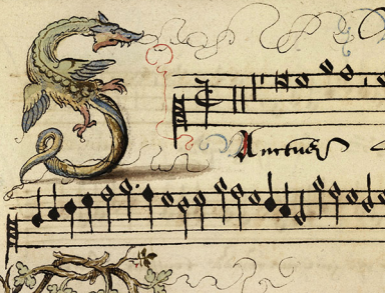 S
Anctus